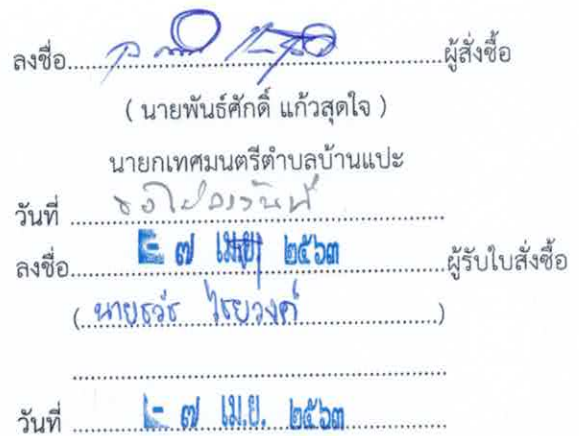 ลงชื่อ..........ผู้สั่งซื้อ
( นายพันธ์ศักดิ์ แก้วสุดใจ )
นายกเทศมนตรีตำบลบ้านแปะ
วันที่ ..........
๗ เม.ย. ๒๕๖๓
ลงชื่อ..........ผู้รับใบสั่งซื้อ
( นายธวัช ไชยวงค์ )
วันที่ ๗ เม.ย. ๒๕๖๓